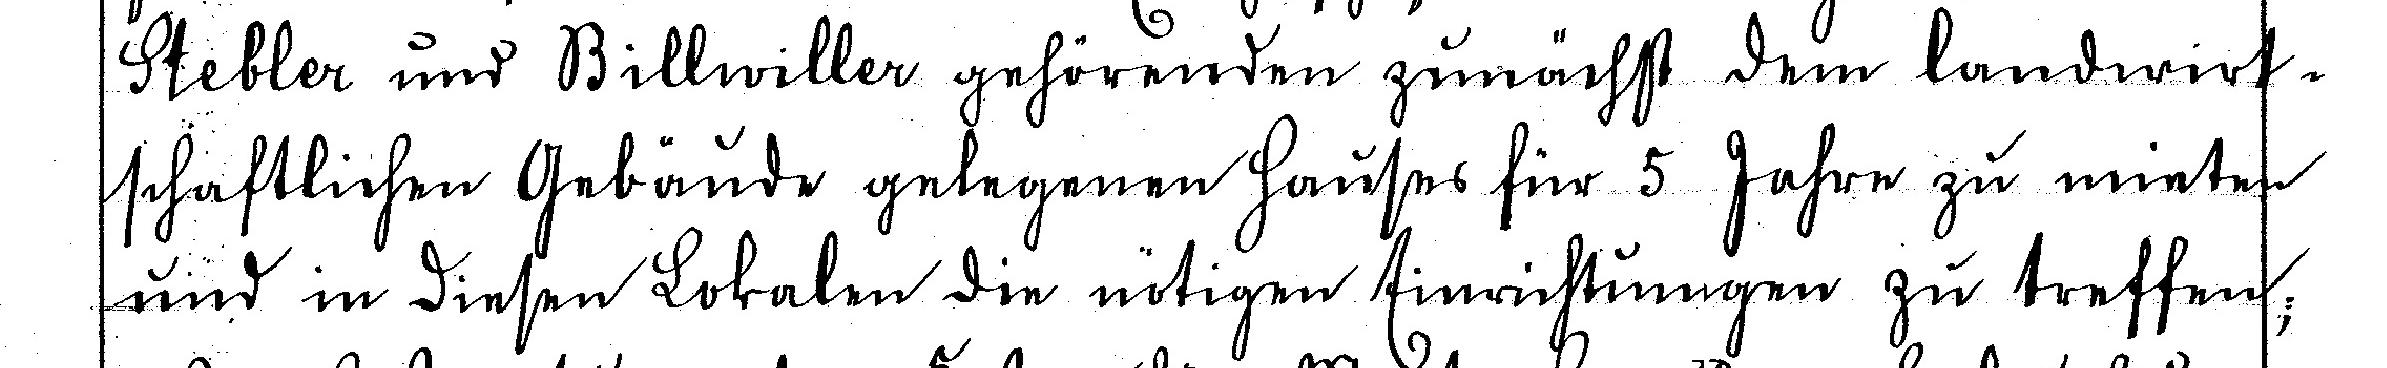 Stebler und Billwiller gehörenden zunächst dem landwirt-
schaftlichen Gebäude gelegenen Hauses für 5 Jahre zu mieten
und in diesen Lokalen die nötigen Einrichtungen zu treffen;